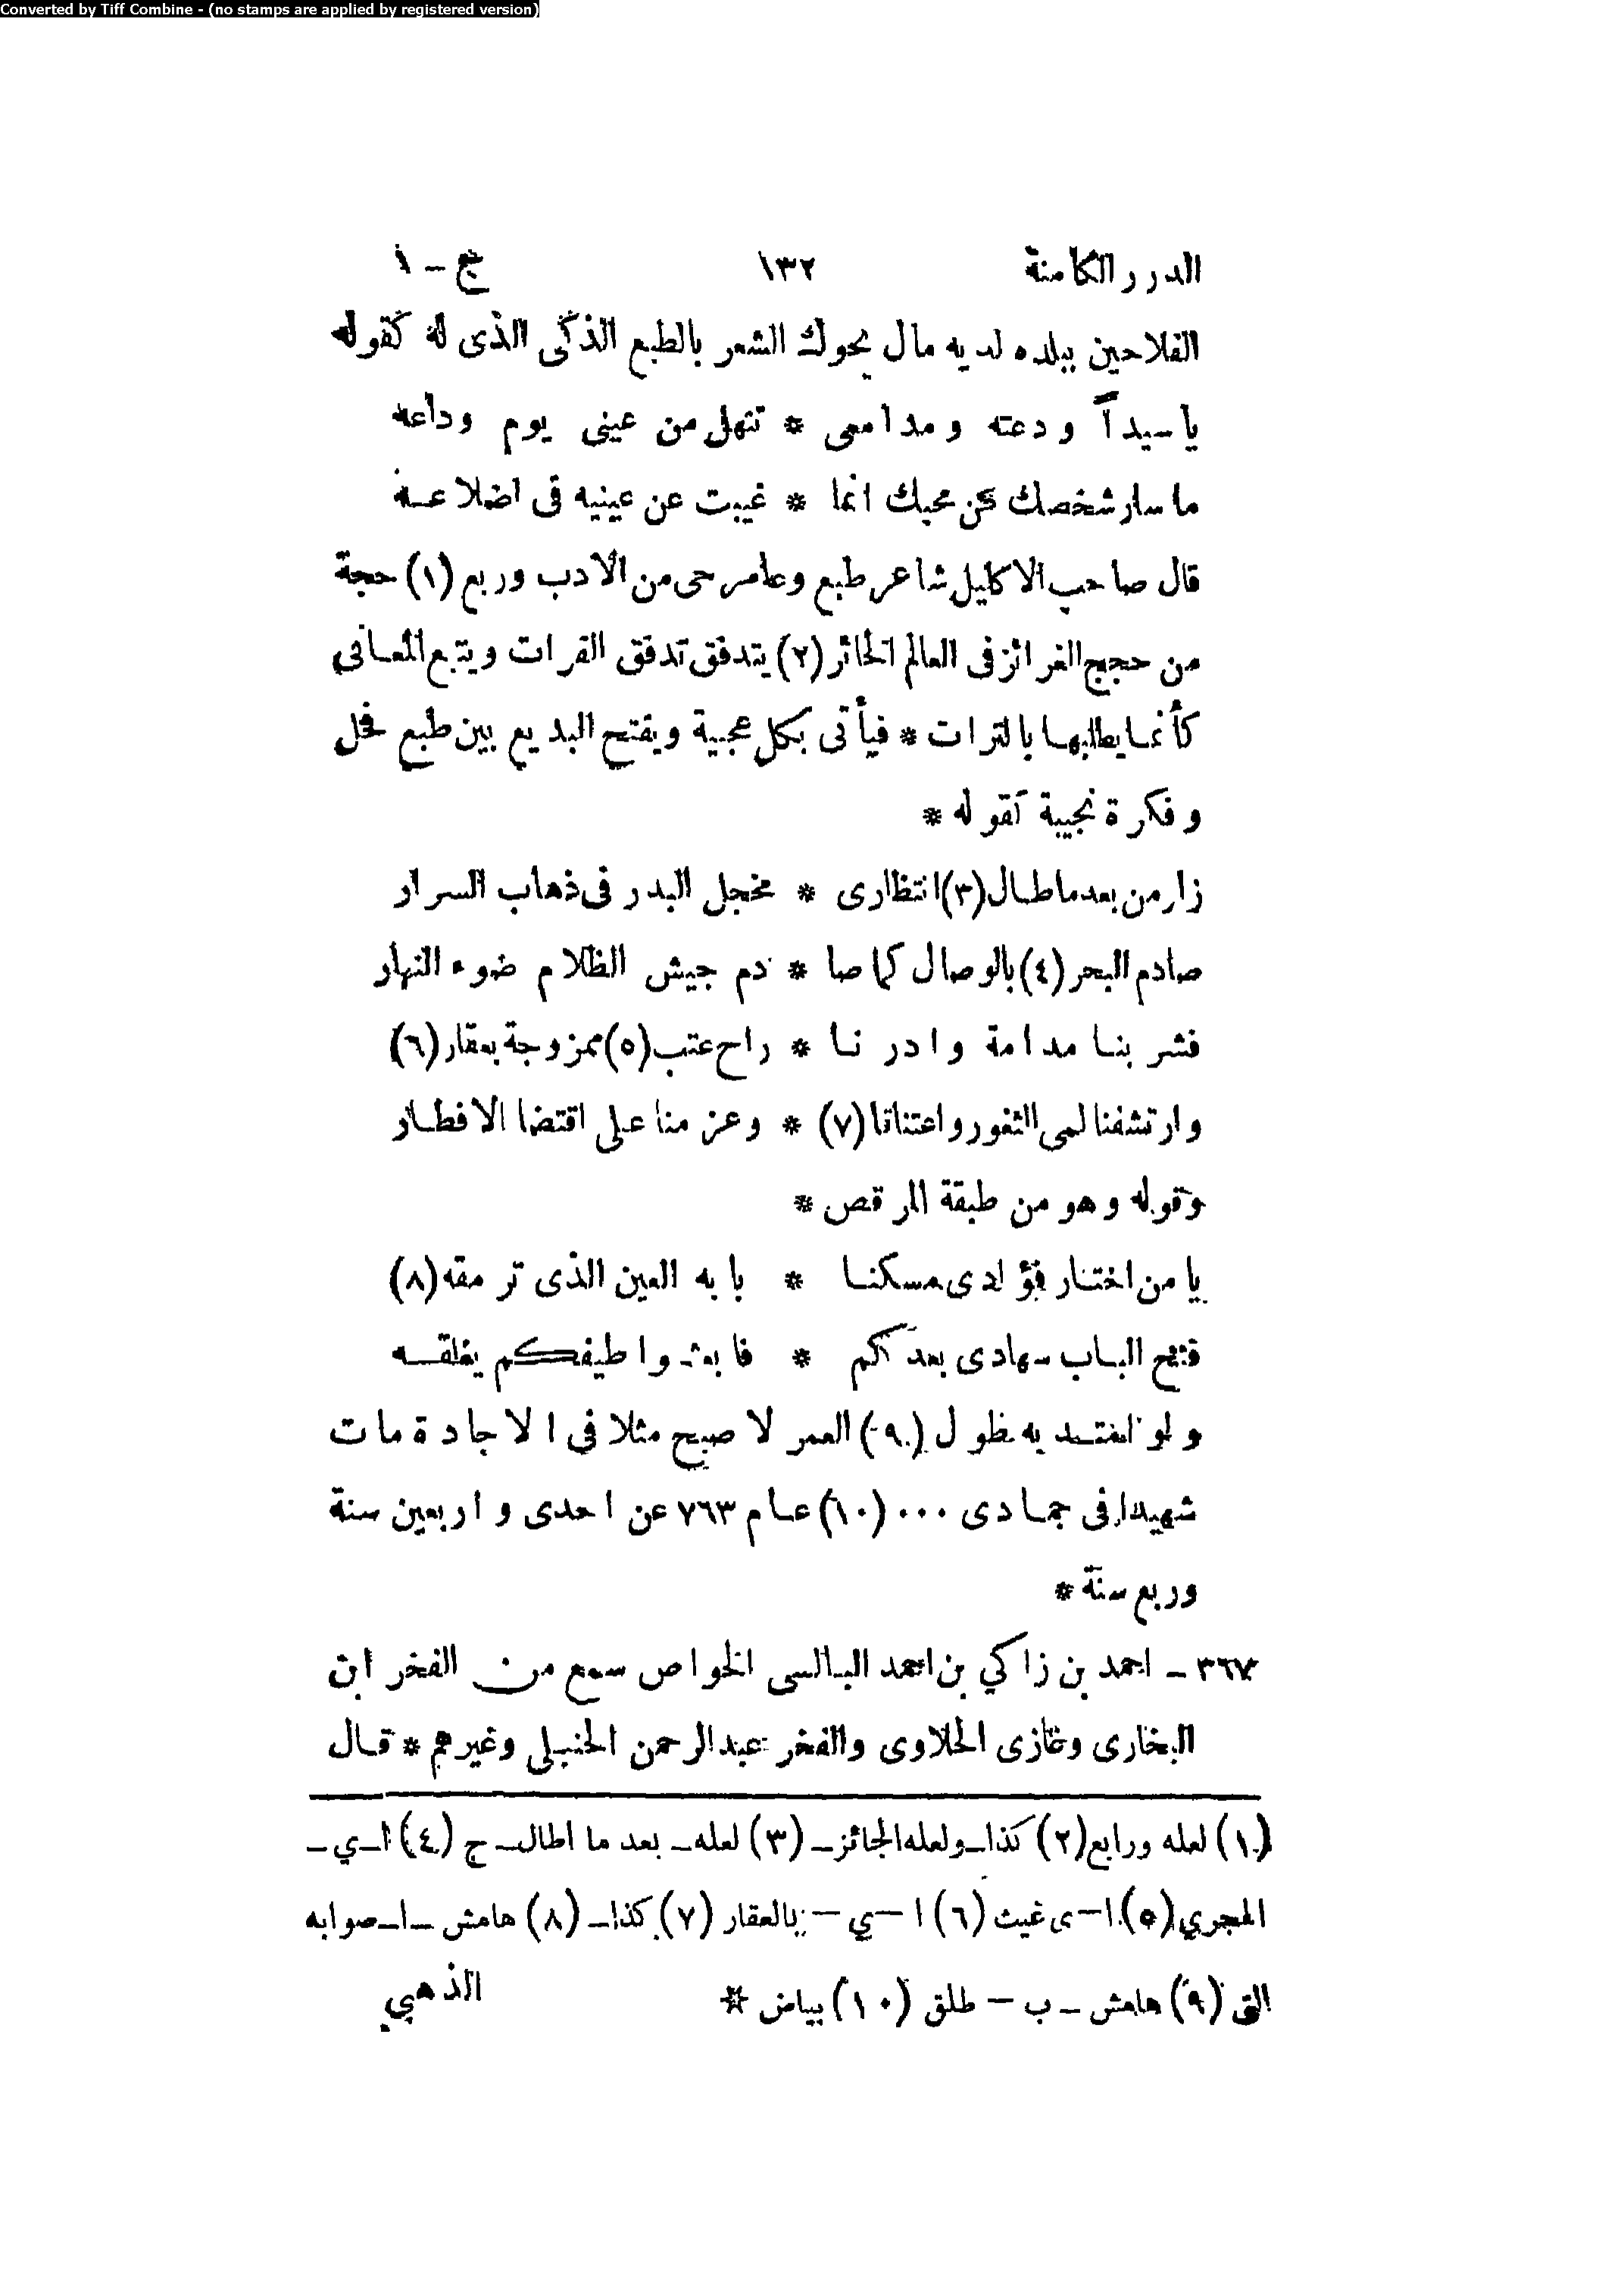 Converted by Tiff Combine - (no stamps are applied by registered version)
الدرر الكامنة ١٣٢ ج - ١
الفلاحين ببلده لديه مال يحوك الشعر بالطبع الذكى الذى له كقوله
يا سيداً ودعته ومدامعى * تنهل من عينى يوم وداعه
ما سار شخصك عن محبك انما * غيبت عن عينيه فى اضلاعه
قال صاحب الاكليل شاعر طبع وعامر حى من الأدب وربع (١) حجة
من حجج الغرائز فى العالم الحائر (٢) يتدفق تدفق الفرات ويتبع المعانى
كأنما يطلبها بالترات * فيأتى بكل عجيبة ويفتح البديع بين طبع فحل
وفكرة نجيبة كقوله *
زار من بعد ما طال (٣) انتظارى * مخجل البدر فى ذهاب السرار
صادم البحر (٤) بالوصال كما صا * دم جيش الظلام ضوء النهار
فشربنا مدامة وادرنا * راح عتب (٥) ممزوجة بعقار (٦)
وارتشفنا لمى الثغور واعتناقا (٧) * وعزمنا على اقتضا الافطار
وقوله وهو من طبقة المرقص *
يا من اختار فؤادى مسكنا * بابه العين الذى ترمقه (٨)
فتح الباب سهادى بعدكم * فابعثوا طيفكم يغلقه
ولو امتد به طول (٩) العمر لاصبح مثلا فى الاجادة مات
شهيدا فى جمادى ... (١٠) عام ٧٦٣ عن احدى واربعين سنة
وربع سنة *
٣٦٧ - احمد بن زاكي بن احمد البالسى الخواص سمع من الفخر ابن
البخارى وغازى الحلاوى والفخر عبد الرحمن الحنبلى وغيرهم * قال
(١) لعله ورابع (٢) كذا - ولعله الجائز - (٣) لعله - بعد ما اطال - ح (٤) ا - ي -
المجري (٥) ا - ى غيث (٦) ا - ي - بالعقار (٧) كذا - (٨) هامش - ا - صوابه
التى (٩) هامش - ب - طلق (١٠) بياض * الذهبي